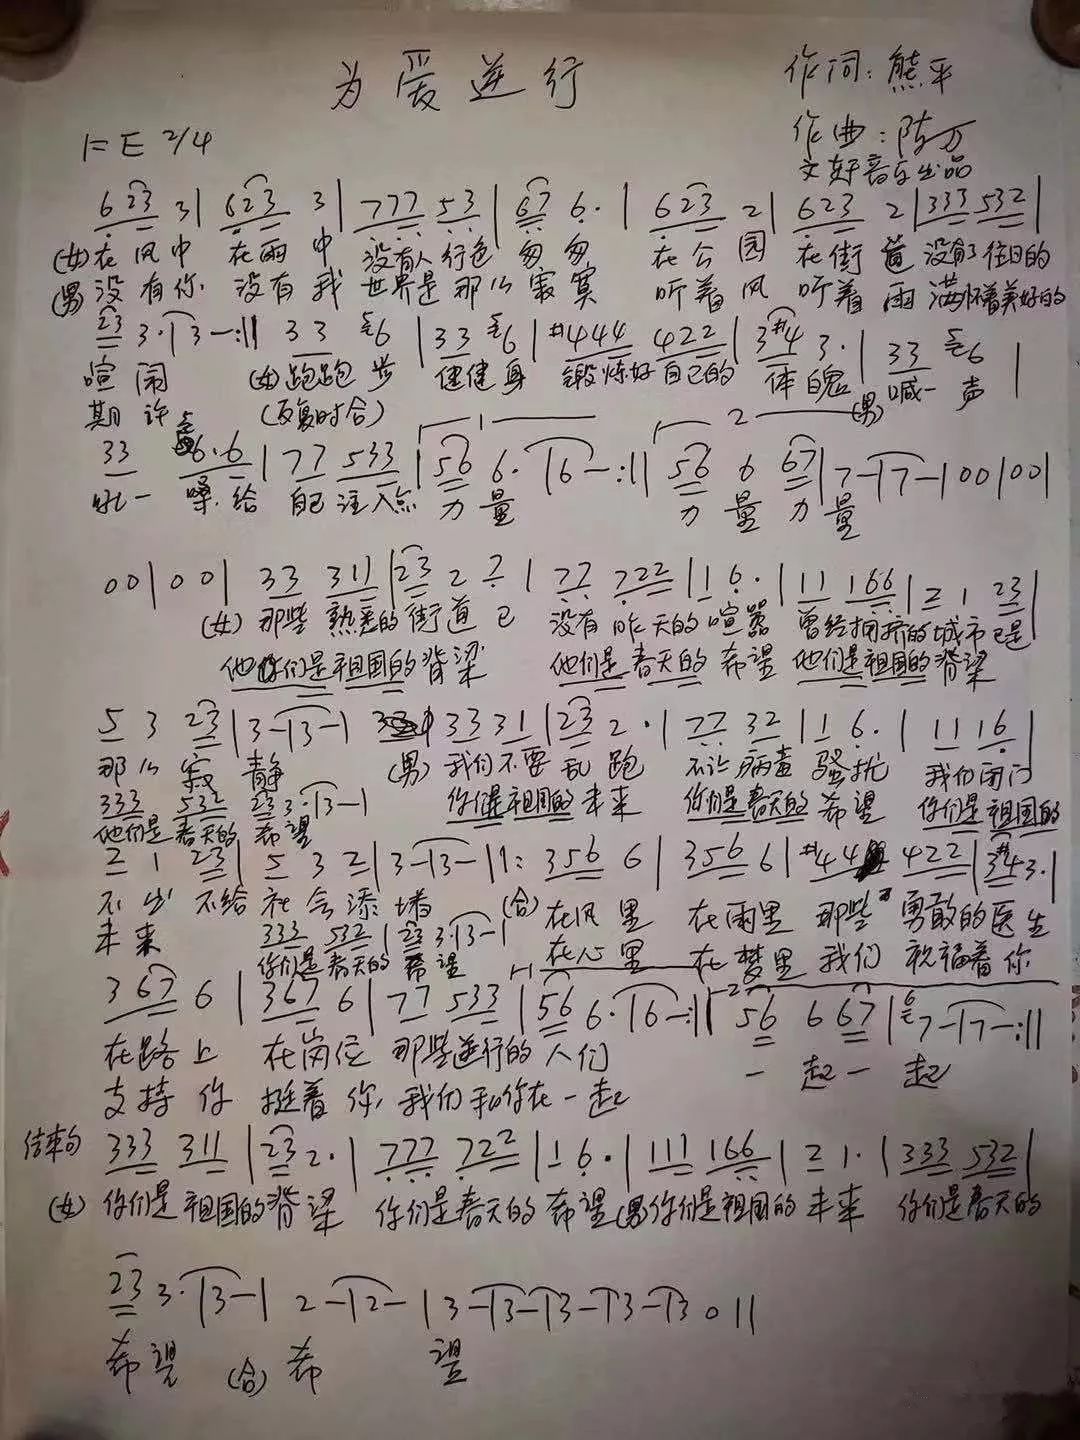 为爱逆行
作词：熊平
1=E 2/4
作曲：陈万
文好音乐出品
623 3| 623 3| 777 53| 67 6·| 623 2| 623 2| 333 532|
(女)在风中 在雨中 没有人行色匆匆 在公园 在街道 没了往日的
(男)没有你 没有我 世界是那么寂寞 听着风 听着雨 满怀着美好的
23 3·|3-:|| 33 6|33 6|#444 422|3#4 3·|33 6|
喧闹 (女)跑跑步 健健身 锻炼好自己的体魄 (男)喊一声
期许 (反复时合)
33 6·6|77 533|56 6·|6-:|| 56 6 67|7-|7-|00|00|
吼一嗓 给自己注入点力量 力量力量
00|00| 33 311|23 2 7|77 722|1 6·|11 166|2 1 23|
(女)那些熟悉的街道已没有昨天的喧嚣 曾经拥挤的城市已是
他们是祖国的脊梁 他们是春天的希望 他们是祖国的脊梁
5 3 23|3-|3-| 33 31|23 2·|77 32|1 6·|11 16|
那么寂静 (男)我们不要乱跑 不让病毒骚扰 我们闭门
333 532 23 3·|3-|
你们是祖国的未来 你们是春天的希望 你们是祖国的
他们是春天的希望
2 1 23|5 3 2|3-|3-||: 356 6|356 6|#44 422|3#4 3·|
不出 不给社会添堵 (合)在风里 在雨里 那些勇敢的医生
未来 333 532|23 3·|3-|
你们是春天的希望 在心里 在梦里 我们祝福着你
367 6|367 6|77 533|56 6·|6-:|| 56 6 67|7-|7-:||
在路上 在岗位 那些逆行的人们 一起一起
支持你 挺着你 我们和你在一起
结束句 333 311|23 2·|777 722|1 6·|111 166|2 1·|333 532|
(女)你们是祖国的脊梁 你们是春天的希望(男)你们是祖国的未来 你们是春天的
23 3·|3-| 2-|2-|3-|3-|3-|3-|3 0||
希望 (合)希 望